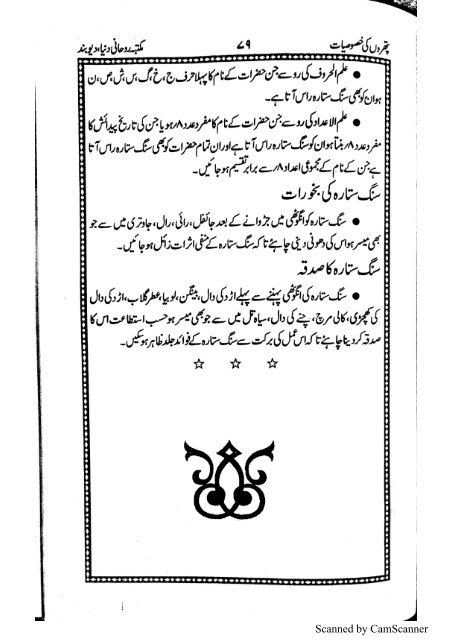 پتھروں کی خصوصیات ۷۹ مکتبہ روحانی دنیا، دیوبند
● علم الحروف کی رو سے جن حضرات کے نام کا پہلا حرف ج، خ، گ، س، ش، ص، ن
ہو ان کو بھی سنگ ستارہ راس آتا ہے۔
● علم الاعداد کی رو سے جن حضرات کے نام کا مفرد عدد ۸ ہو یا جن کی تاریخ پیدائش کا
مفرد عدد ۸ بنتا ہو ان کو سنگ ستارہ راس آتا ہے اور ان تمام حضرات کو بھی سنگ ستارہ راس آتا
ہے جن کے نام کے مجموعی اعداد ۸ سے برابر تقسیم ہو جائیں۔
سنگ ستارہ کی بخورات
● سنگ ستارہ کو انگوٹھی میں جڑوانے کے بعد جائفل، رائی، رال، جاوتری میں سے جو
بھی میسر ہو اس کی دھونی دینی چاہئے تاکہ سنگ ستارہ کے منفی اثرات زائل ہو جائیں۔
سنگ ستارہ کا صدقہ
● سنگ ستارہ کی انگوٹھی پہننے سے پہلے اڑد کی دال، بینگن، لوبیا، عطر گلاب، اڑد کی دال
کی کھچڑی، کالی مرچ، چنے کی دال، سیاہ تل میں سے جو بھی میسر ہو حسب استطاعت اس کا
صدقہ کر دینا چاہئے تاکہ اس عمل کی برکت سے سنگ ستارہ کے فوائد جلد ظاہر ہو سکیں۔
☆ ☆ ☆
Scanned by CamScanner